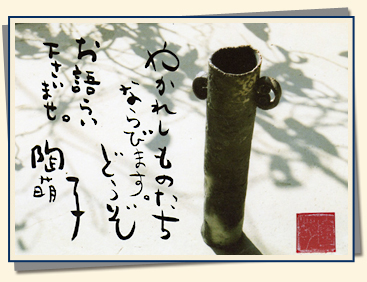 やかれしものたち
ならびます。
どうぞ
お語らい
下さいませ。
陶萌